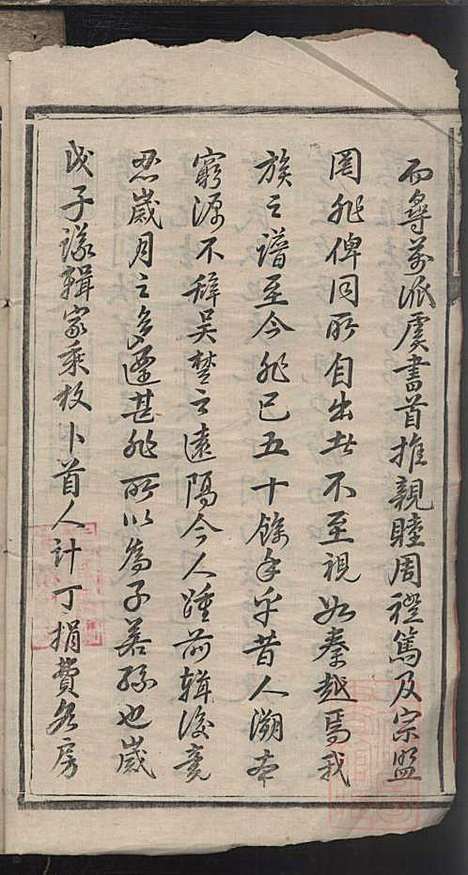 而尋萬派虞書首推親睦周禮篤及宗盟
罔非俾同所自出者不至視如秦越焉我
族之譜至今非已五十餘年乎昔人溯本
窮源不辭吳楚之遠隔今人踵前輯後竟
忍歲月之多遷甚非所以為子若孫也歲
戊子議輯家乘枚卜首人計丁捐費各房